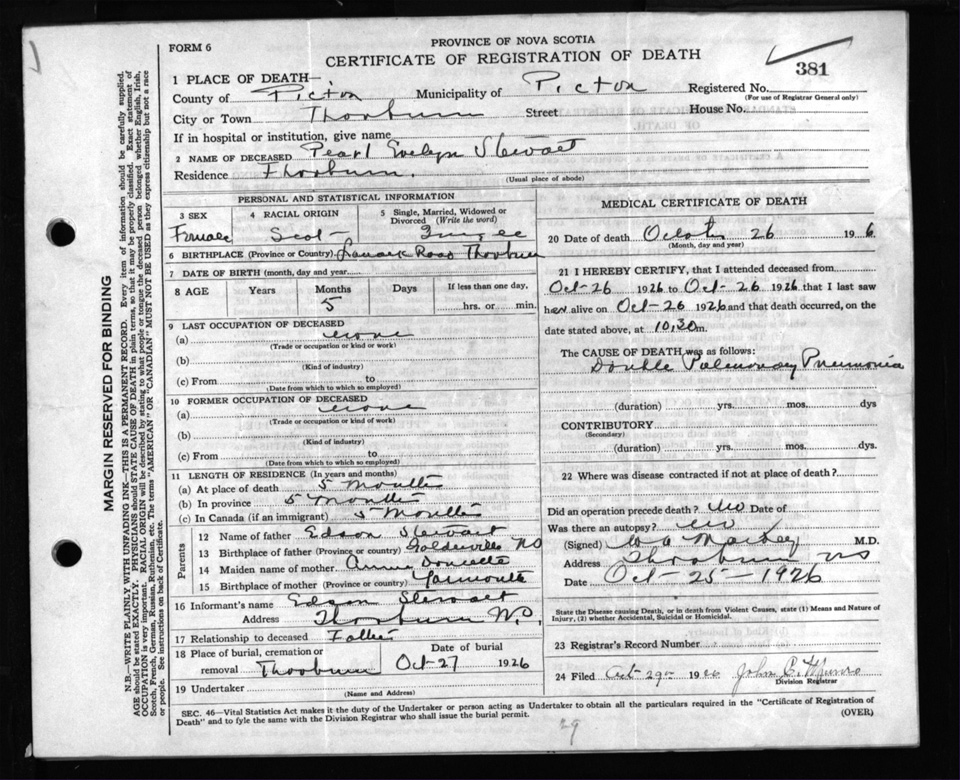 FORM 6
PROVINCE OF NOVA SCOTIA
CERTIFICATE OF REGISTRATION OF DEATH
381
1 PLACE OF DEATH—
County of Pictou Municipality of Pictou Registered No.
(For use of Registrar General only)
City or Town Thorburn Street House No.
If in hospital or institution, give name
2 NAME OF DECEASED Pearl Evelyn Stewart
Residence Thorburn.
(Usual place of abode)
PERSONAL AND STATISTICAL INFORMATION
3 SEX 4 RACIAL ORIGIN 5 Single, Married, Widowed or Divorced (Write the word)
Female Scot- Single
6 BIRTHPLACE (Province or Country) Road Thorburn
7 DATE OF BIRTH (month, day and year)
8 AGE Years Months Days If less than one day,
5 hrs. or min.
9 LAST OCCUPATION OF DECEASED
(a) none
(Trade or occupation or kind or work)
(b)
(Kind of industry)
(c) From to
(Date from which to which so employed)
10 FORMER OCCUPATION OF DECEASED
(a) none
(Trade or occupation or kind or work)
(b)
(Kind of industry)
(c) From to
(Date from which to which so employed)
11 LENGTH OF RESIDENCE (In years and months)
(a) At place of death 5 Months
(b) In province 5 Months
(c) In Canada (if an immigrant) 5 Months
Parents
12 Name of father Edson Stewart
13 Birthplace of father (Province or country) Goldenville NS
14 Maiden name of mother Annie
15 Birthplace of mother (Province or country) Yarmouth
16 Informant's name Edson Stewart
Address Thorburn N.S.
17 Relationship to deceased Father
18 Place of burial, cremation or removal Thorburn Date of burial Oct 27 1926
19 Undertaker
(Name and Address)
MEDICAL CERTIFICATE OF DEATH
20 Date of death 26 19 6
(Month, day and year)
21 I HEREBY CERTIFY, that I attended deceased from
Oct-26 1926 to Oct-26 1926 that I last saw
her alive on Oct-26 1926 and that death occurred, on the
date stated above, at 10,30 m.
The CAUSE OF DEATH was as follows:
Double Pulmonary Pneumonia
(duration) yrs. mos. dys
CONTRIBUTORY
(Secondary)
(duration) yrs. mos. dys.
22 Where was disease contracted if not at place of death?
Did an operation precede death? No Date of
Was there an autopsy? No
(Signed) M.D.
Address Thorburn NS
Date Oct-25-1926
State the Disease causing Death, or in death from Violent Causes, state (1) Means and Nature of
Injury, (2) whether Accidental, Suicidal or Homicidal.
23 Registrar's Record Number
24 Filed Oct 29 19 John Munro
Division Registrar
SEC. 46—Vital Statistics Act makes it the duty of the Undertaker or person acting as Undertaker to obtain all the particulars required in the "Certificate of Registration of
Death" and to fyle the same with the Division Registrar who shall issue the burial permit. (OVER)
29
MARGIN RESERVED FOR BINDING
N.B.—WRITE PLAINLY WITH UNFADING INK—THIS IS A PERMANENT RECORD. Every item of information should be carefully supplied.
AGE should be stated EXACTLY. PHYSICIANS should STATE CAUSE OF DEATH in plain terms, so that it may be properly classified. Exact statement of
OCCUPATION is very important. RACIAL ORIGIN will be described by stating to what people or tongue the deceased person belonged whether English, Irish,
Scotch, French, German, Russian, Ruthenian, etc. The terms "AMERICAN" OR "CANADIAN" MUST NOT BE USED as they express citizenship but not a race
or people. See instructions on back of Certificate.